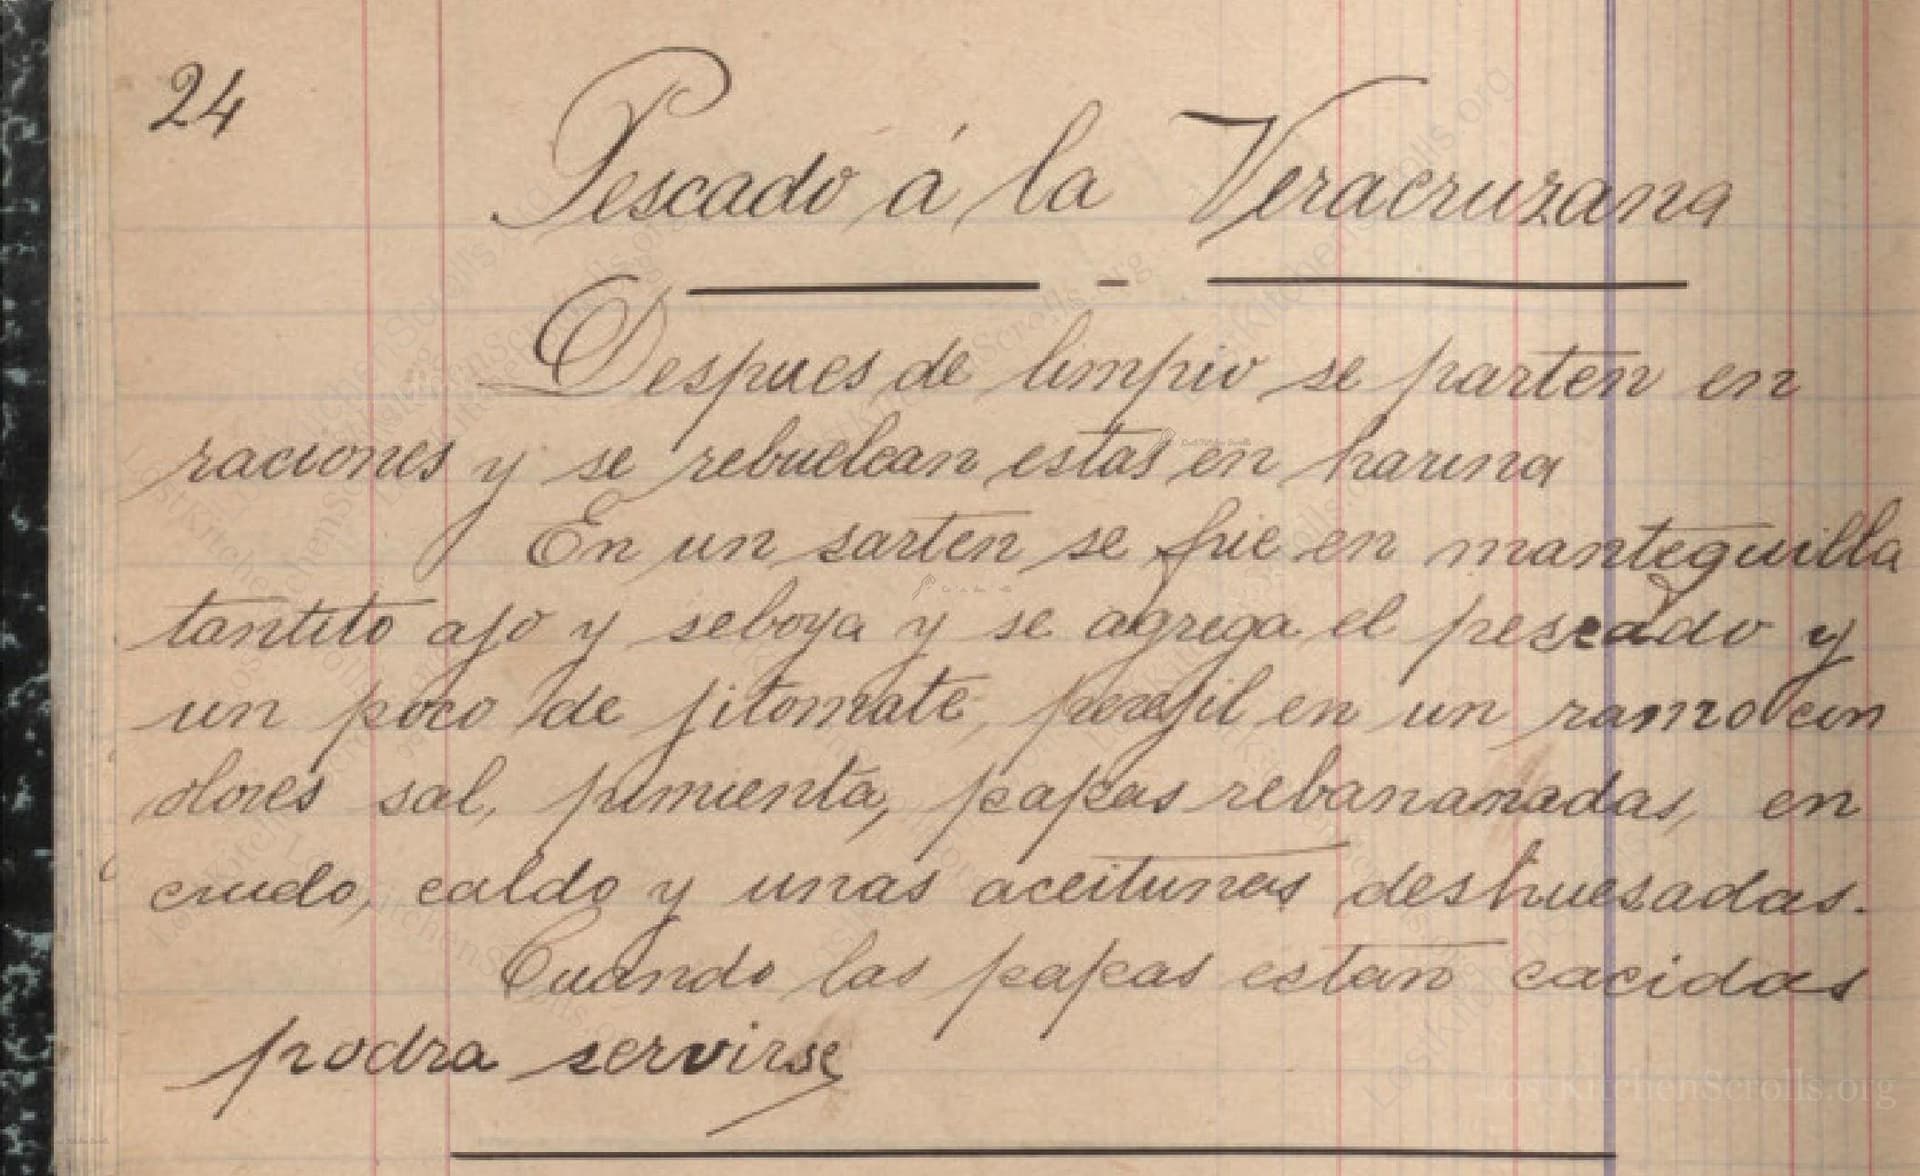 24
Pescado á la Veracruzana
Despues de limpio se parten en
raciones y se rebuelcan estas en harina
En un sarten se frie en manteguilla
tantito ajo y seboya y se agrega el pescado y
un poco de jitomate, perejil en un ramo con
olores sal, pimienta, papas rebananadas, en
crudo, caldo y unas aceitunas deshuesadas.
Cuando las papas estan cacidas
podra servirse
LostKitchenScrolls.org